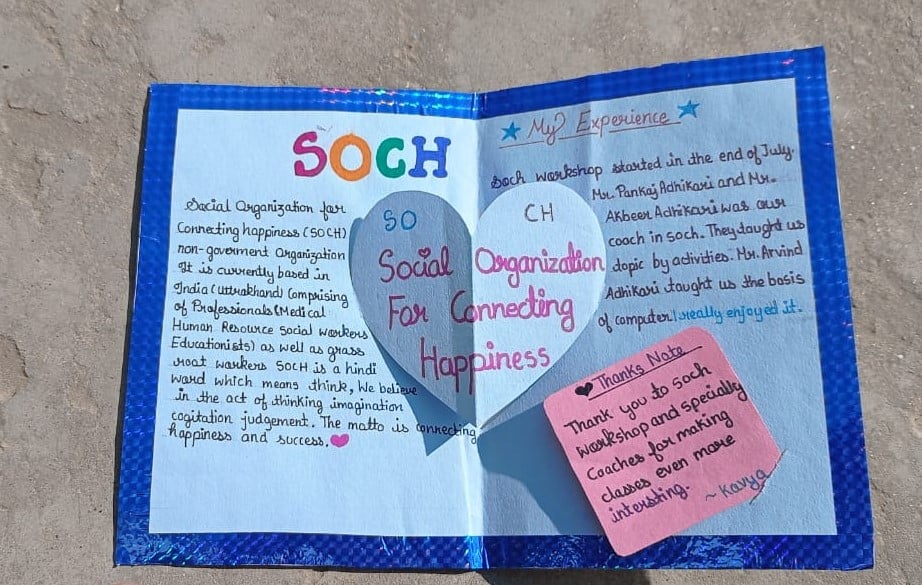 SOCH
Social Organization for
Connecting happiness (SOCH)
non-goverment Organization
It is currently based in
India (uttrakhand) Comprising
of Professionals (Medical
Human Resource Social workers
Educationists) as well as grass
root workers SOCH is a hindi
word which means think, We believe
in the act of thinking imagination
cogitation judgement. The motto is connecting
happiness and success.
SO CH
Social Organization
For Connecting
Happiness
My Experience
Soch workshop started in the end of July.
Mr. Pankaj Adhikari and Mr.
Akbeer Adhikari was our
coach in soch. They taught us
topic by activities. Mr. Arvind
Adhikari taught us the basis
of computer. I really enjoyed it.
Thanks Note
Thank you to soch
workshop and specially
Coaches for making
classes even more
intersting.
~ Kavya